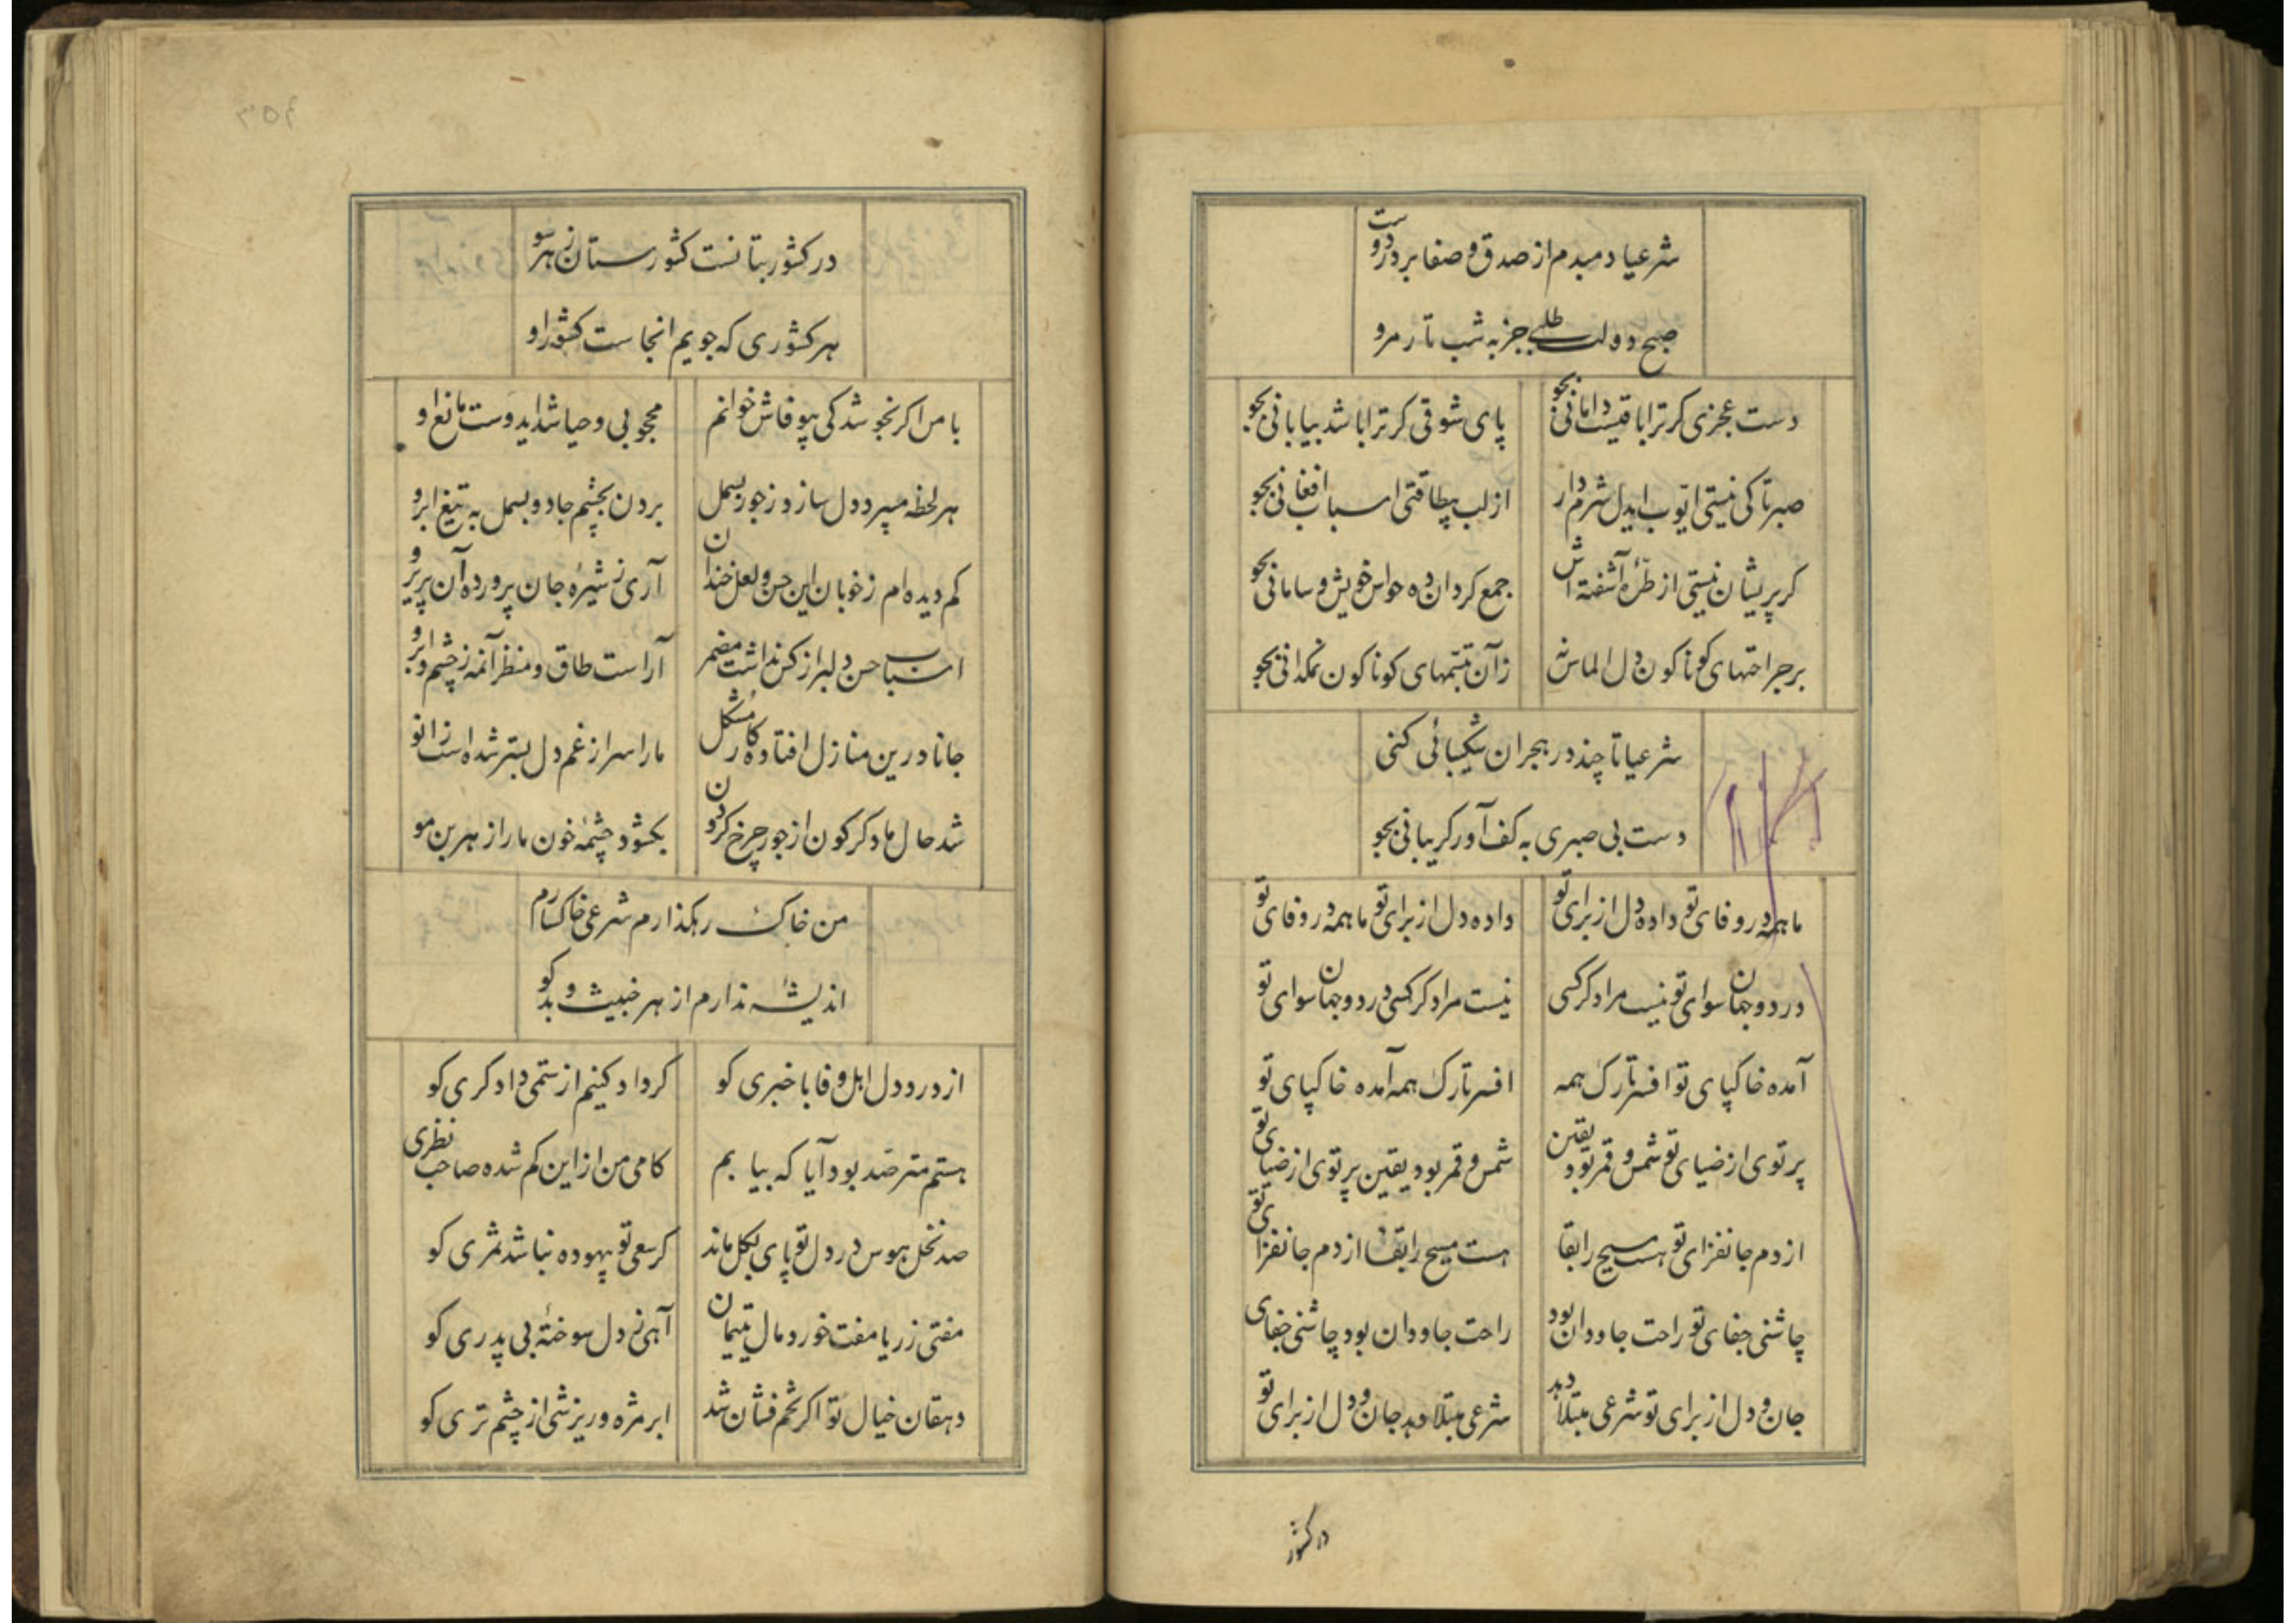 شرعیا دمبدم از صدق و صفا بر در دوست
صبح دولت طلبی جز به شب تار مرو
دست عجزی کر ترا باقیست دامانی بجو
پای شوقی کر ترا باشد بیابانی بجو
صبر تا کی نیستی ایوب ایدل شرم دار
از لب بیطاقتی اسباب افغانی بجو
کر پریشان نیستی از طرّه آشفته اش
جمع کردان ده حواس خویش و سامانی بجو
بر جراحتهای کوناکون دل الماس نه
زآن تبسّمهای کوناکون نمکدانی بجو
شرعیا تا چند در هجران شکیبائی کنی
دست بی صبری به کف آور کریبانی بجو
ما همه در وفای تو داده دل از برای تو
داده دل از برای تو ما همه در وفای تو
در دو جهان سوای تو نیست مراد کر کسی
نیست مراد کر کسی در دو جهان سوای تو
آمده خاکپای تو افسر تارک همه
افسر تارک همه آمده خاکپای تو
پرتوی از ضیای تو شمس و قمر بود یقین
شمس و قمر بود یقین پرتوی از ضیای تو
از دم جانفزای تو هست مسیح را بقا
هست مسیح را بقا از دم جانفزای تو
چاشنی جفای تو راحت جاودان بود
راحت جاودان بود چاشنی جفای
جان و دل از برای تو شرعی مبتلا دهد
شرعی مبتلا دهد جان و دل از برای تو
در کشور
در کشور بتانست کشورستان ز هر سو
هر کشوری که جویم انجاست کشور او
با من اکر نجوشد کی بیوفاش خوانم
محجوبی و حیا شد ایدوست مانع او
هر لحظه میبرد دل سازد ز جور بسمل
بردن بچشم جادو بسمل به تیغ ابرو
کم دیده ام ز خوبان این حسن و لعل خندان
آری ز شیره جان پرورده آن پریرو
اسباب حسن دلبر از کس نداشت مضمر
آراست طاق و منظر آنمه ز چشم و ابرو
جانا درین منازل افتاده کار مشکل
ما را سر از غم دل بستر شده است زانو
شد حال ما دکرکون از جور چرخ کردون
بکشود چشمهٔ خون ما را از هر بن مو
من خاک رهکذارم شرعی خاکسارم
اندیشه ندارم از هر خبیث و بدکو
از درد دل اهل وفا با خبری کو
کر داد کنیم از ستمی دادکری کو
هستم مترصّد بود آیا که بیابم
کامی من از این کم شده صاحب نظری
صد نخل هوس در دل تو پای بکل ماند
کر سعی تو بیهوده نباشد ثمری کو
مفتی ز ریا مفت خورد مال یتیمان
آهی ز دل سوختهٔ بی پدری کو
دهقان خیال تو اکر تخم فشان شد
ابر مژه و ریزشی از چشم تری کو